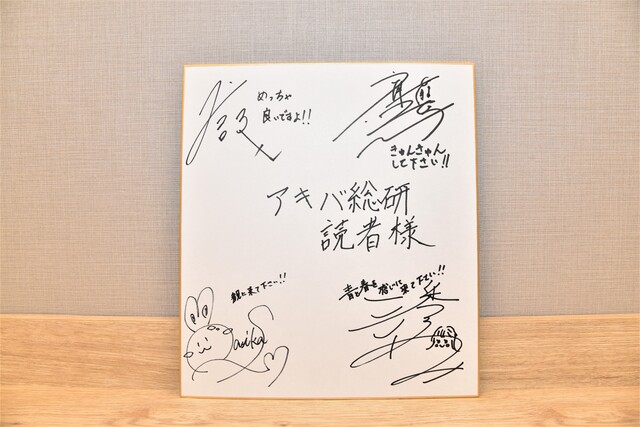 めっちゃ
良いですよ!!
きゅんきゅん
して下さい!!
アキバ総研
読者様
観に来て下さい!!
青い春を感じに来て下さい!!